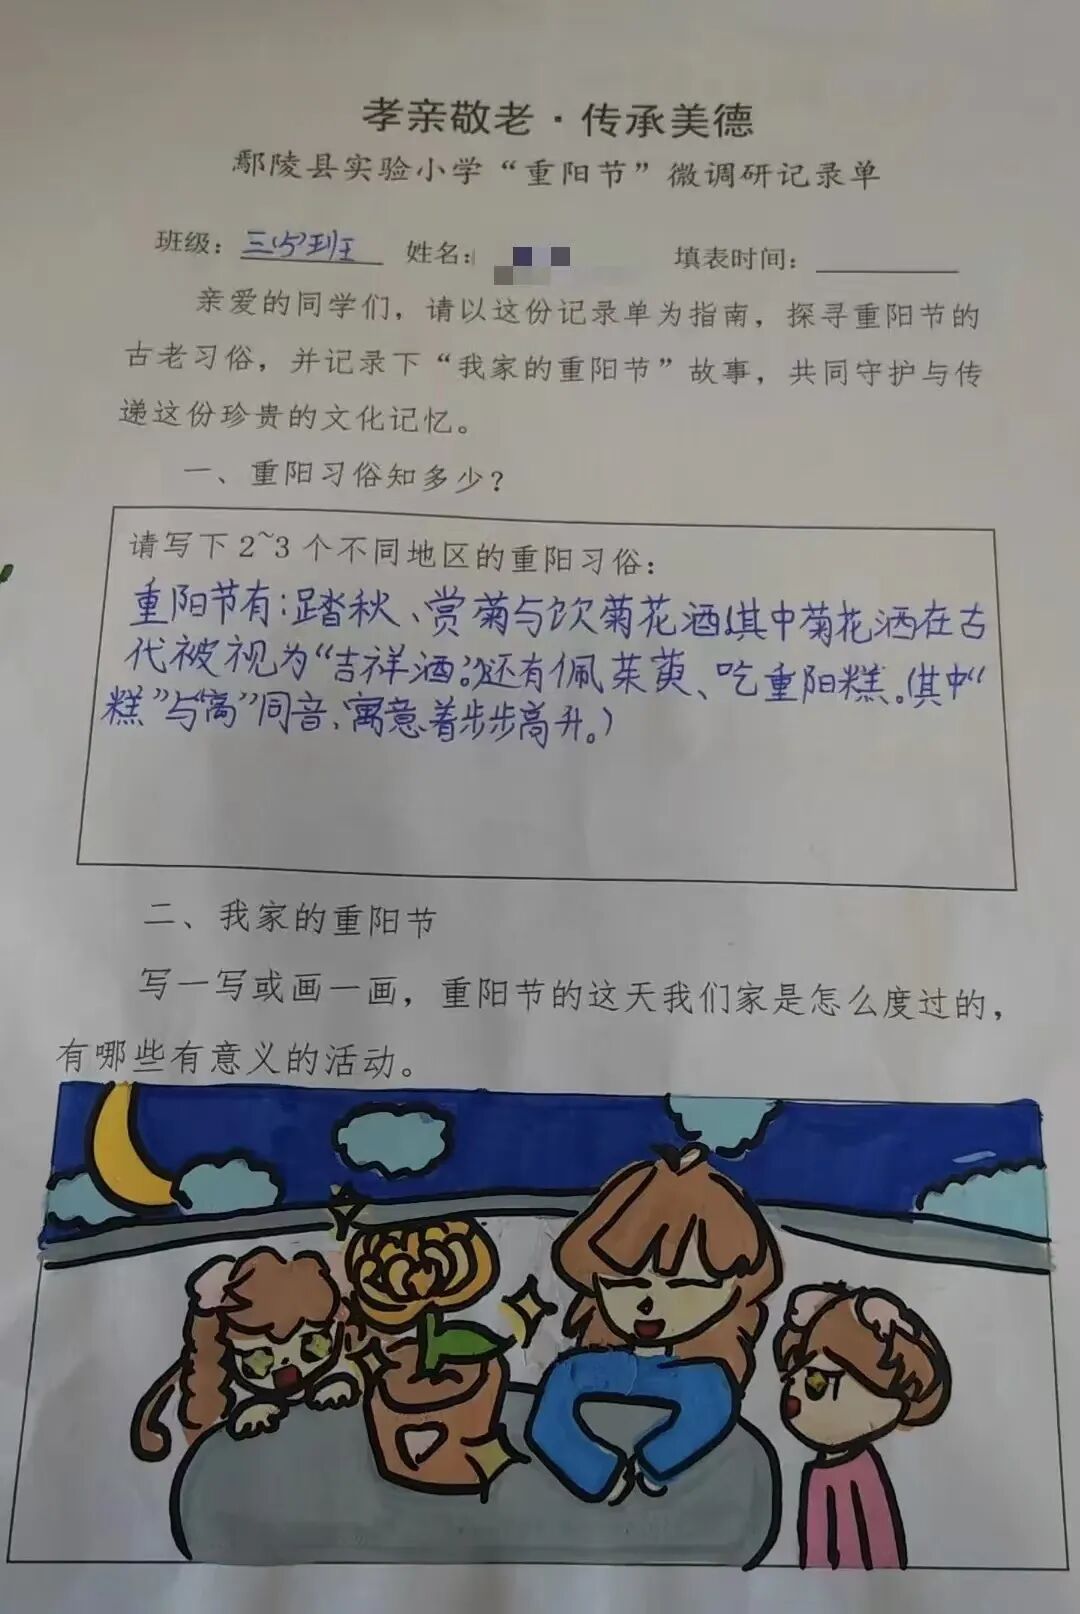 孝亲敬老·传承美德
鄢陵县实验小学“重阳节”微调研记录单
班级：三（5）班 姓名： 填表时间：
亲爱的同学们，请以这份记录单为指南，探寻重阳节的
古老习俗，并记录下“我家的重阳节”故事，共同守护与传
递这份珍贵的文化记忆。
一、重阳习俗知多少？
请写下2~3个不同地区的重阳习俗：
重阳节有：踏秋、赏菊与饮菊花酒，其中菊花酒在古
代被视为“吉祥酒”。还有佩茱萸、吃重阳糕。（其中“
糕”与“高”同音、寓意着步步高升。）
二、我家的重阳节
写一写或画一画，重阳节的这天我们家是怎么度过的，
有哪些有意义的活动。